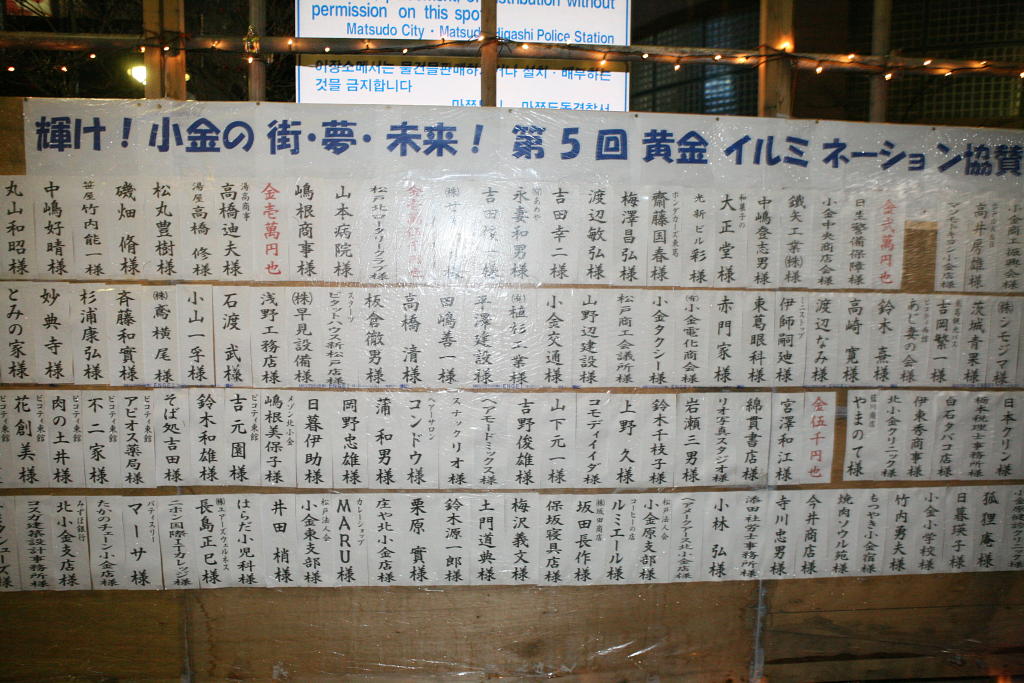 permission on this spot
Matsudo City · Matsudo Higashi Police Station
것을 금지합니다
輝け！小金の街・夢・未来！ 第５回 黄金イルミネーション協賛
高井房雄様
金弐萬円也
日生警備保障様
小金中央商店会様
鐵矢工業㈱様
中嶋登志男様
和菓子の 大正堂様
光新ビル彩様
ホンダカーズ東葛 齋藤国春様
梅澤昌弘様
渡辺敏弘様
吉田幸二様
永妻和男様
松戸北ロータリークラブ様
山本病院様
嶋根商事様
金壱萬円也
湯高商事 高橋迪夫様
湯屋 高橋修様
松丸豊樹様
磯畑脩様
笹屋 竹内能一様
中嶋好晴様
丸山和昭様
㈱シモジマ様
茨城青果様
東葛観光バス 吉岡繁一様
ビコティ西館 あじ妻の会様
鈴木熹様
高崎寛様
渡辺なみ様
ミニストップ 伊師嗣廸様
東葛眼科様
赤門家様
㈲小金電化商会様
小金タクシー様
松戸商工会議所様
山野辺建設様
小金交通様
㈲植杉工業様
平澤建設様
田嶋善一様
高橋清様
板倉徹男様
ピザハウス新松戸店様
㈱早見設備様
浅野工務店様
石渡武様
小山一孚様
㈱鳶横尾様
斉藤和實様
杉浦康弘様
妙典寺様
とみの家様
日本クリン様
栃木税理士事務所様
白石タバコ店様
伊東秀商事様
北小金クリニック様
やまのて様
金伍千円也
宮澤和江様
綿貫書店様
リオ写真スタジオ様
岩瀬三男様
鈴木千枝子様
上野久様
コモディイイダ様
山下元一様
吉野俊雄様
ヘアモードミックス様
スナックリオ様
ヘアーサロン コンドウ様
蒲和男様
岡野忠雄様
日暮伊助様
メゾン北小金 嶋根美保子様
ビコティ東館 吉元園様
鈴木和雄様
そば処吉田様
ビコティ東館 アピオス薬局様
ビコティ東館 不二家様
ビコティ東館 肉の土井様
ビコティ東館 花創美様
狐狸庵様
日暮瑛子様
小金小学校様
竹内勇夫様
もつやき小金宿様
焼肉ソウル苑様
今井商店様
寺川忠男様
添田社労士事務所様
小林弘様
ヘアメイクアース北小金店様
松戸法人会 小金原支部様
コーヒーの店 ルミエール様
㈱坂田商店 坂田長作様
保坂寝具店様
梅沢義文様
土門道典様
鈴木源一郎様
栗原實様
庄や北小金店様
カレーショップ MARU様
松戸法人会 小金東支部様
井田梢様
はらだ小児科様
㈱エアーズウェルネス 長島正巳様
ニホン国際ITカレッジ様
パティスリー マーサ様
たかのチェーン小金店様
みずほ銀行 北小金支店様
コスモ建築設計事務所様